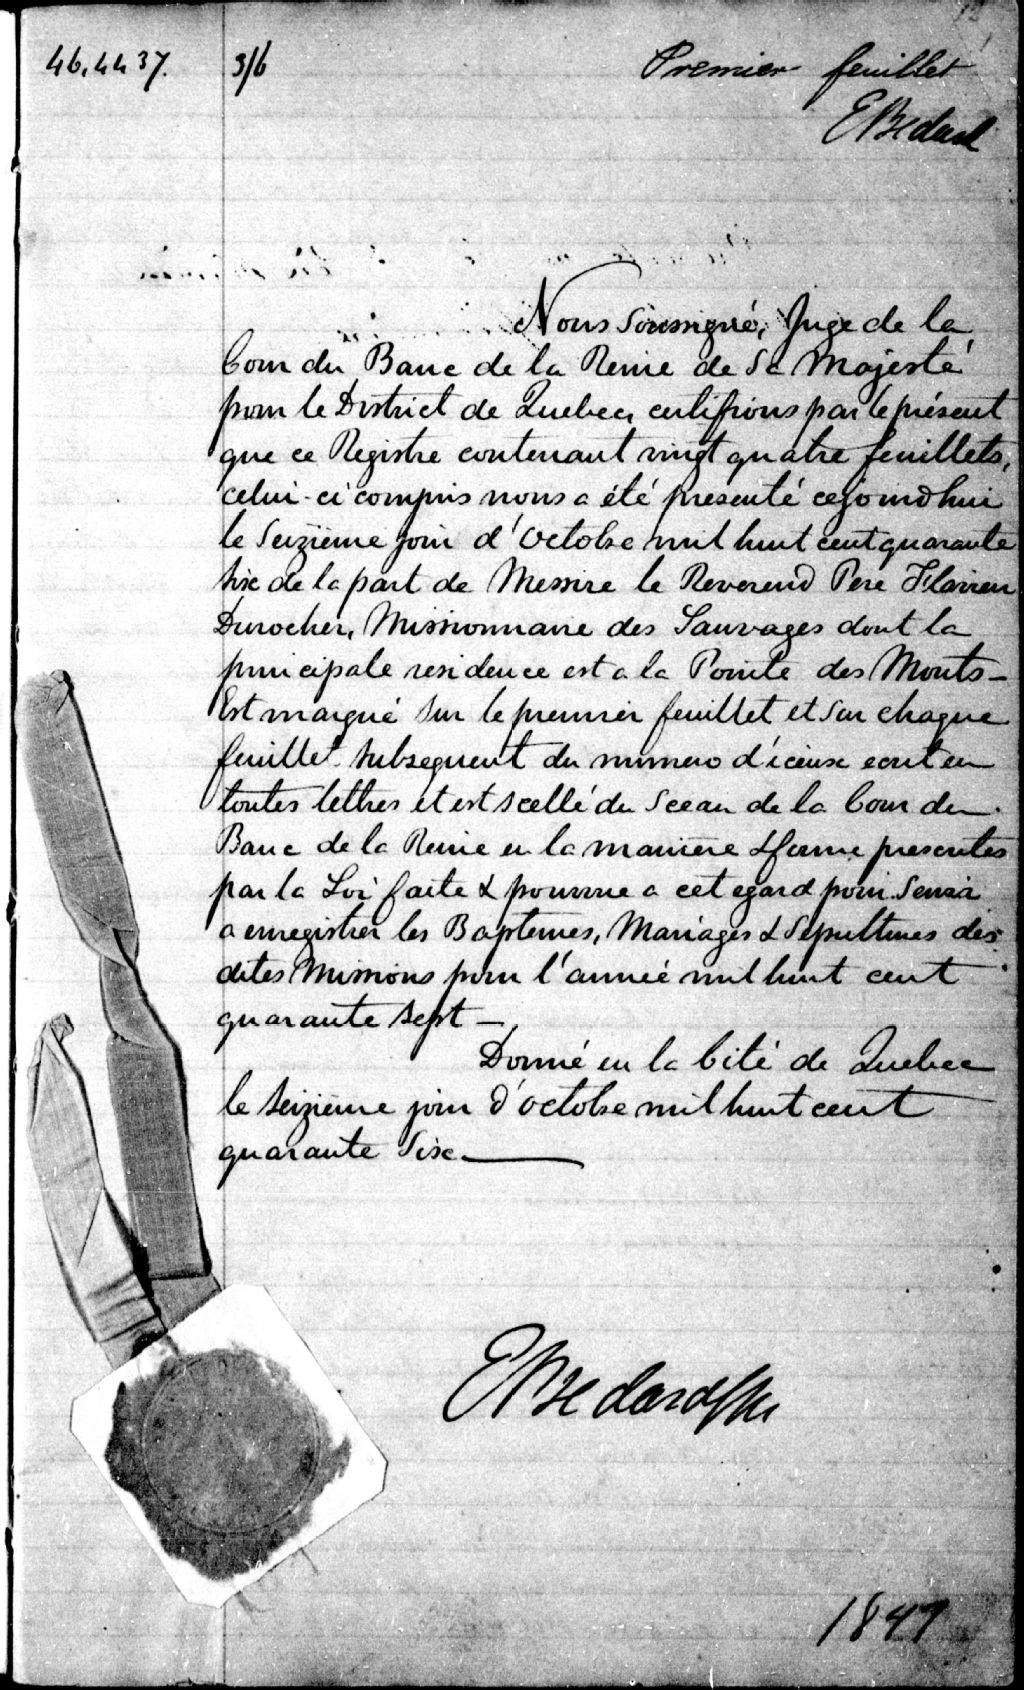 46.44 37. 3/6 Premier feuillet
E Bedard
Nous Soussigné, Juge de la
Cour du Banc de la Reine de Sa Majesté
pour le District de Quebec, certifions par le présent
que ce Registre contenant vingt quatre feuillets,
celui-ci compris nous a été presenté cejourdhui
le Seizième jour d'Octobre mil huit cent quarante
six de la part de Messire le Reverend Pere Flavien
Durocher, Missionnaire des Sauvages dont la
principale residence est a la Pointe des Monts-
Est marqué sur le premier feuillet et sur chaque
feuillet subsequent du numero d'iceux ecrit en
toutes lettres et est scellé du Sceau de la Cour du
Banc de la Reine en la maniere & forme prescrites
par la Loi faite & pourvue a cet egard pour servir
a enregistrer les Baptemes, Mariages & Sépultures des
dites Missions pour l'année mil huit cent
quarante sept -
Donné en la Cité de Quebec
le seizieme jour d'octobre mil huit cent
quarante Six
E Bedard
1847